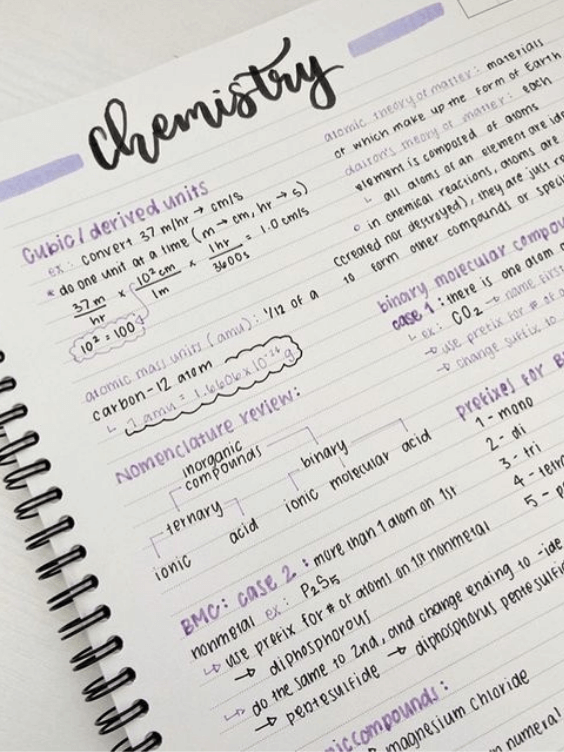 chemistry
cubic / derived units
ex: convert 37 m/hr → cm/s
* do one unit at a time (m → cm, hr → s)
37 m/hr × 10² cm/1m × 1hr/3600s = 1.0 cm/s
10² = 100
atomic mass units (amu): 1/12 of a
carbon-12 atom
↳ 1 amu = 1.6606 × 10⁻²⁴ g
Nomenclature review:
inorganic
compounds
binary
ternary
ionic molecular acid
ionic acid
BMC: case 2: more than 1 atom on 1st
nonmetal ex: P₂S₅
↳ use prefix for # of atoms on 1st nonmetal
→ diphosphorous
↳ do the same to 2nd, and change ending to -ide
→ pentesulfide → diphosphorus pentesulfid
nic compounds:
magnesium chloride
numeral
atomic theory of matter: materials
of which make up the form of Earth
dalton's theory of matter: each
element is composed of atoms
↳ all atoms of an element are ide
in chemical reactions, atoms are
(created nor destroyed), they are just re
to form other compounds or speci
binary molecular compou
case 1: there is one atom
↳ ex: CO₂ → name first
→ use prefix for # of
→ change suffix to
prefixes for B
1 - mono
2 - di
3 - tri
4 - tetr
5 - p